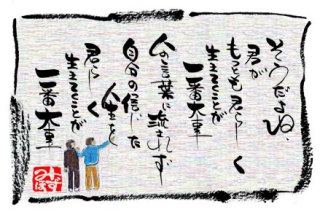 そうだよね、
君が
もっとも君らしく
生きることが
一番大事
人の言葉に流されず
自分の信じた
人生を
君らしく
生きることが
一番大事